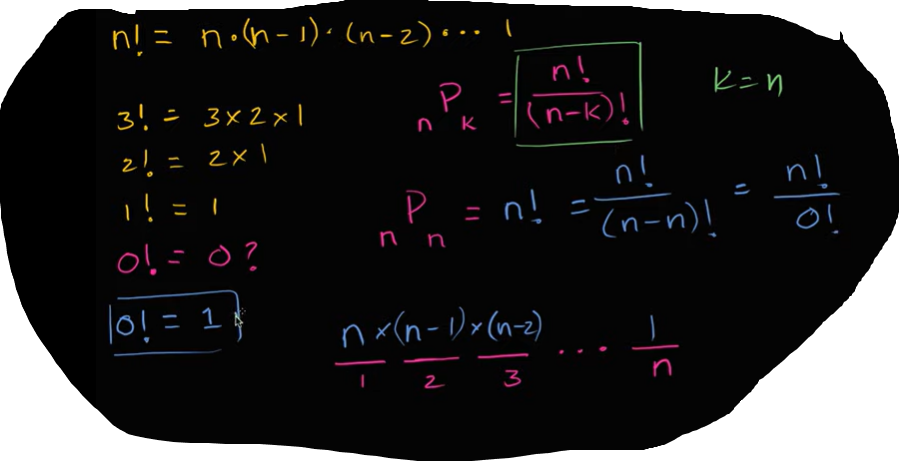 n! = n·(n-1)·(n-2)··· 1
3! = 3×2×1
2! = 2×1
1! = 1
0! = 0?
0! = 1
nPk = n!/(n-k)!
k=n
nPn = n! = n!/(n-n)! = n!/0!
n×(n-1)×(n-2) ··· 1
1 2 3 n